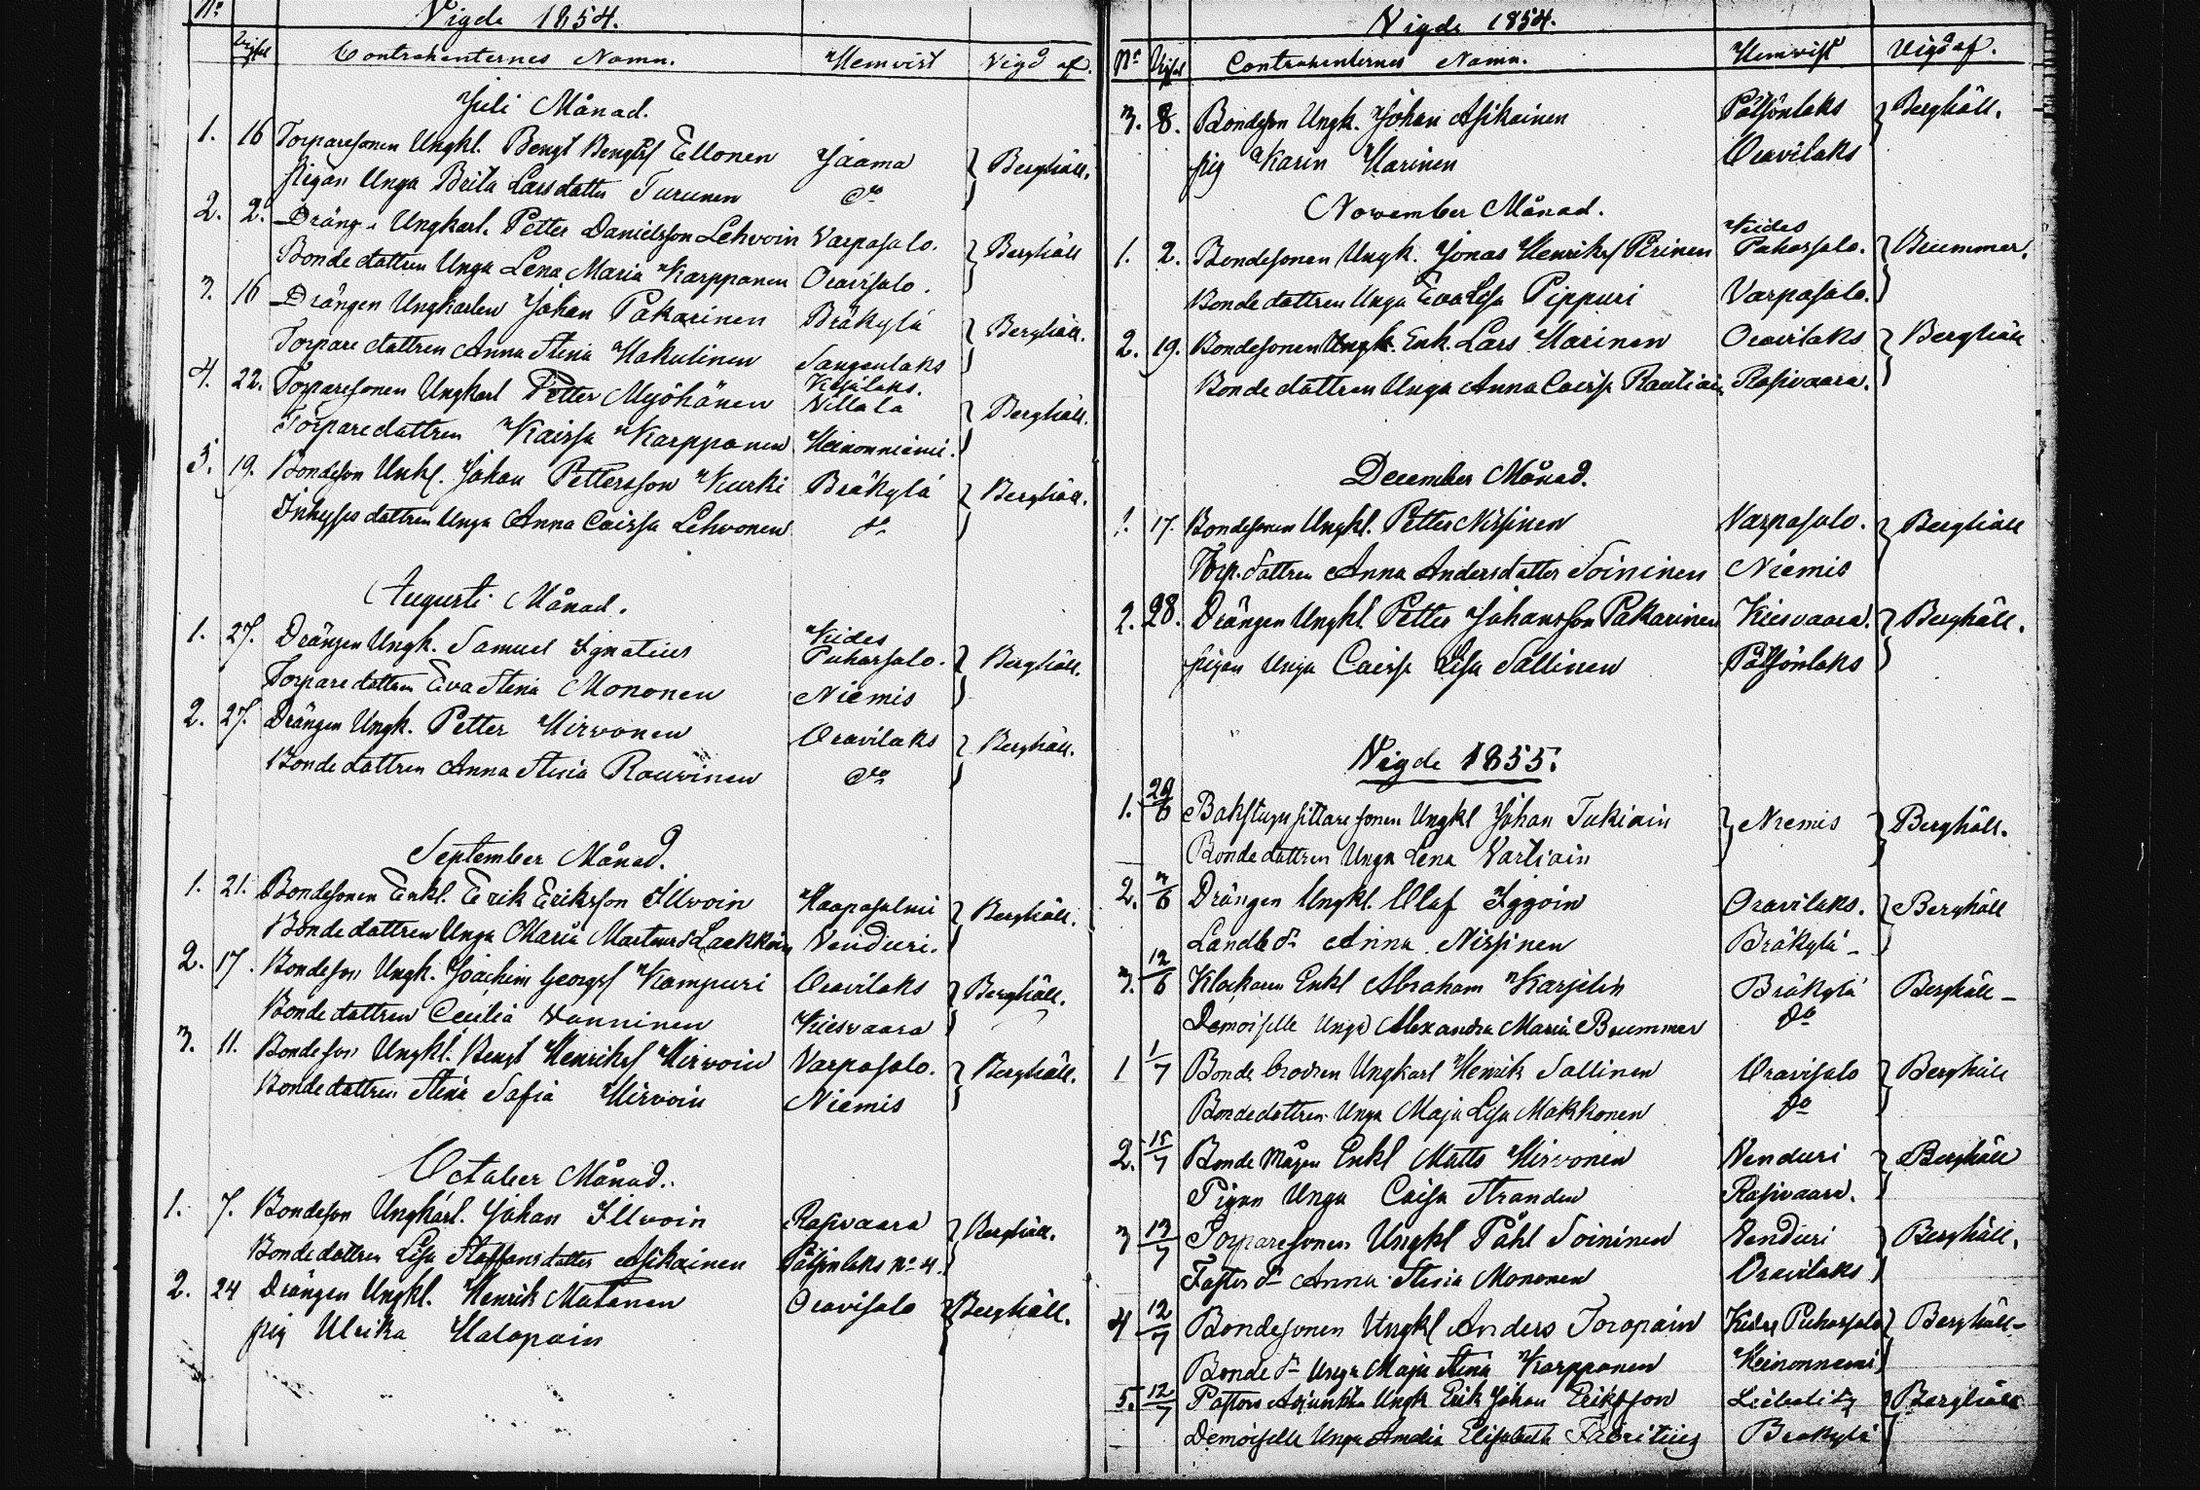 No Vigde 1854.
Vigsel Contrahenternes Namn. Hemvist Vigd af.
Juli Månad.
1. 16 Torparesonen Ungkl. Bengt Bengtss Ellonen Jaama Berghäll.
Pigan Unga Brita Larsdotter Turunen do
2. 2. Dräng. Ungkarl. Petter Danielsson Lehvoin Varpasalo. Berghäll
Bonde dottren Unga Lena Maria Karpponen Oravisalo.
3. 16 Drängen Ungkarlen Johan Pakarinen Bräkylä Berghäll.
Torpare dottren Anna Stina Hakulinen Sangenlaks
4. 22. Torparesonen Ungkarl Petter Myöhänen Villala Berghäll.
Torparedottren Kaissa Karpponen Heinonniemi.
5. 19. Bondeson Unkl. Johan Pettersson Kurki Bräkylä Berghäll.
Inhyses dottren Unga Anna Caissa Lehvonen do
Augusti Månad.
1. 27. Drängen Ungk. Samuel Ignatius Kides Puhossalo. Berghäll.
Torpare dottren Eva Stina Mononen Niemis
2. 27. Drängen Ungk. Petter Hirvonen Oravilaks Berghäll.
Bonde dottren Anna Stina Rouvinen do
September Månad.
1. 21. Bondesonen Enkl. Erik Eriksson Illvoin Haapasalmi Berghäll.
Bonde dottren Unga Maria Martensd Laakkoin Venduri.
2. 17. Bondeson Ungk. Joachim Georgss Kompuri Oravilaks Berghäll.
Bonde dottren Cecilia Vanninen Kiesvaara
3. 11. Bondeson Ungkl. Bengt Henrikss Hirvoin Varpasalo. Berghäll.
Bonde dottren Stina Safia Hirvoin Niemis
October Månad.
1. 7. Bondeson Ungkarl. Johan Illvoin Rasivaara Berghäll.
Bonde dottren Lisa Staffansdotter Asikainen Pötsönlaks No 4.
2. 24 Drängen Ungkl. Henrik Matanen Oravisalo Berghäll.
pig Ulrika Halopain
Vigde 1854.
No Vigsel Contrahenternes Namn. Hemvist Vigd af.
3. 8. Bondeson Ungk. Johan Asikainen Pötsönlaks Berghäll.
pig Karin Harinen Oravilaks
November Månad.
1. 2. Bondesonen Ungk. Jonas Henrikss Pirinen Kides Puhossalo. Brummer.
Bonde dottren Unga Eva Lisa Pippuri Varpasalo.
2. 19. Bondesonen Enk. Lars Harinen Oravilaks Berghäll
Bonde dottren Unga Anna Caisa Rautiain Rasivaara.
December Månad.
1. 17. Bondesonen Ungkl. Petter Nissinen Varpasalo. Berghäll
Torp. dottren Anna Andersdotter Soininen Niemis
2. 28. Drängen Ungkl. Petter Johansson Pakarinen Kiesvaara. Berghäll.
pigan Unga Caisa Lisa Sallinen Pötsönlaks
Vigde 1855.
1. 29/6 Bakstugusittare sonen Ungkl Johan Tukiain Niemis Berghäll.
Bonde dottren Unga Lena Vartiain
2. 7/6 Drängen Ungkl. Olof Iggoin Oravilaks. Berghäll
Landb dr Anna Nissinen Bräkylä -
3. 12/6 Klockaren Enkl Abraham Karjelin Bräkylä Berghäll -
Demoiselle Unga Alexandra Maria Brummer do
1 1/7 Bonde brodren Ungkarl Henrik Sallinen Oravisalo Berghäll
Bondedottren Unga Maja Lisa Makkonen do
2. 15/7 Bonde Mågen Enkl Matts Hirvonen Venduri Berghäll
Pigan Unga Caisa Stranden Rasivaara.
3 13/7 Torparesonen Ungkl Påhl Soininen Venduri Berghäll.
Torpar dr Anna Stina Mononen Oravilaks
4 12/7 Bondesonen Ungkl Anders Toropain Kides Puhossalo Berghäll -
Bonde dr Unga Maja Stina Karpponen Heinonniemi
5. 12/7 Pastors Adjunkten Ungk Erik Johan Eriksson Berghäll
Demoiselle Unga Amalia Elisabeth Fabritius Bräkylä